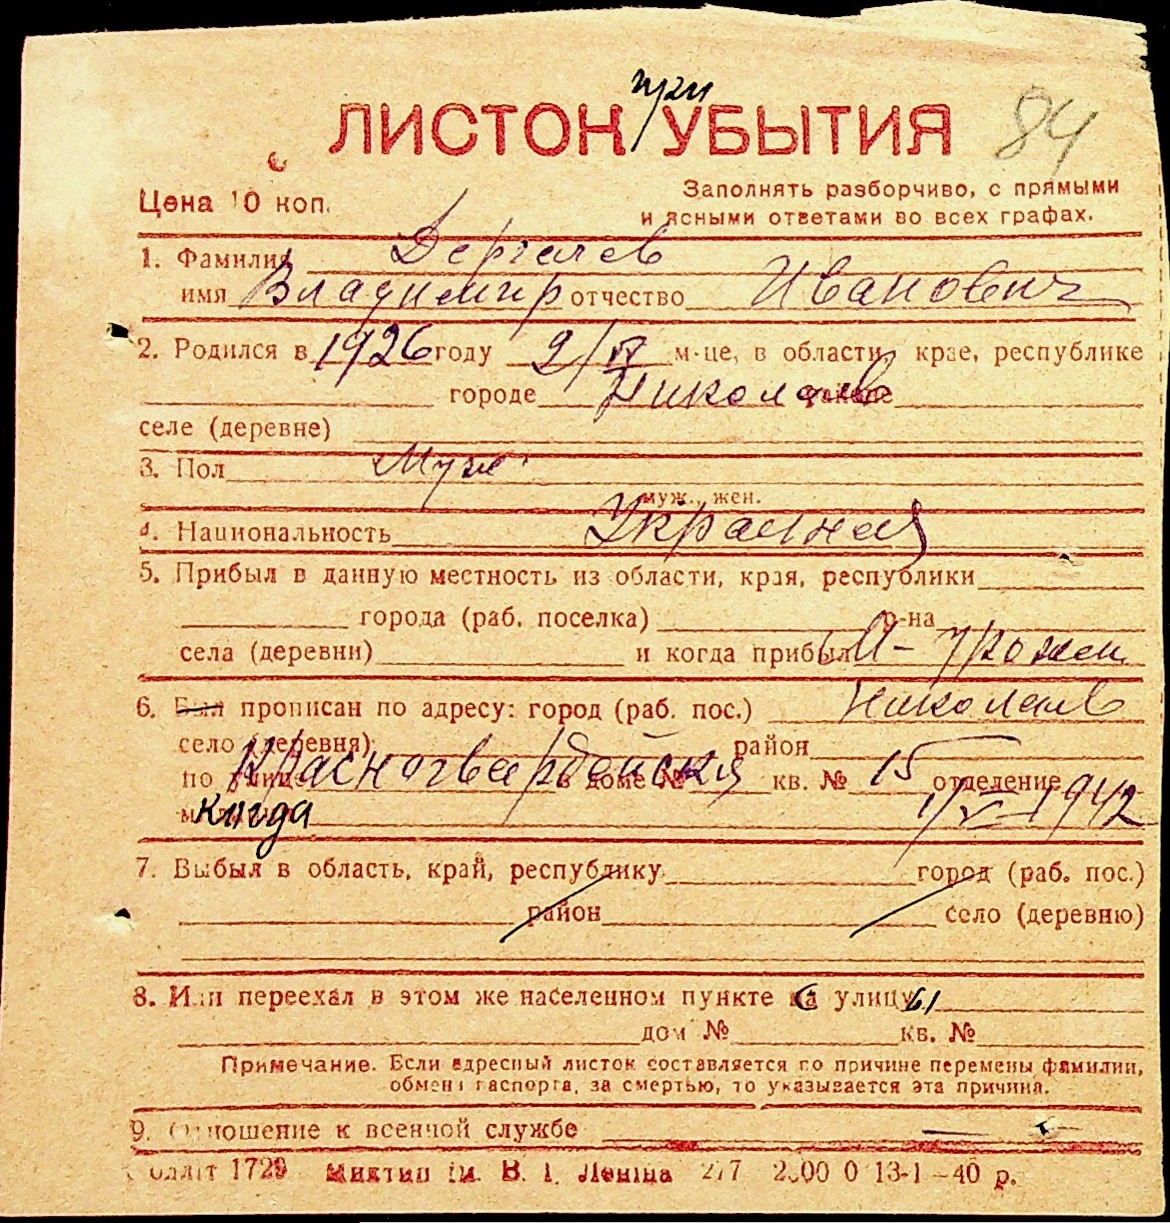 при
ЛИСТОК / УБЫТИЯ 84
Цена 10 коп. Заполнять разборчиво, с прямыми
и ясными ответами во всех графах.
1. Фамилия Дергалев
имя Владимир отчество Иванович
2. Родился в 1926 году 2/IV м-це, в области, крае, республике
городе Николаев
селе (деревне)
3. Пол Муж.
муж., жен.
4. Национальность Украинец
5. Прибыл в данную местность из области, края, республики
города (раб. поселка) р-на
села (деревни) и когда прибыл
6. Был прописан по адресу: город (раб. пос.) Николаев
село (деревня) район
по улице Красногвардейская в доме № кв. № 15 отделение
когда 1/V-1942
7. Выбыл в область, край, республику город (раб. пос.)
район село (деревню)
8. Или переехал в этом же населенном пункте на улицу 61
дом № кв. №
Примечание. Если адресный листок составляется по причине перемены фамилии,
обмена паспорта, за смертью, то указывается эта причина.
9. Отношение к военной службе
Облліт 1729 Миктип ім. В. І. Леніна 277 2000 0 13-1-40 р.